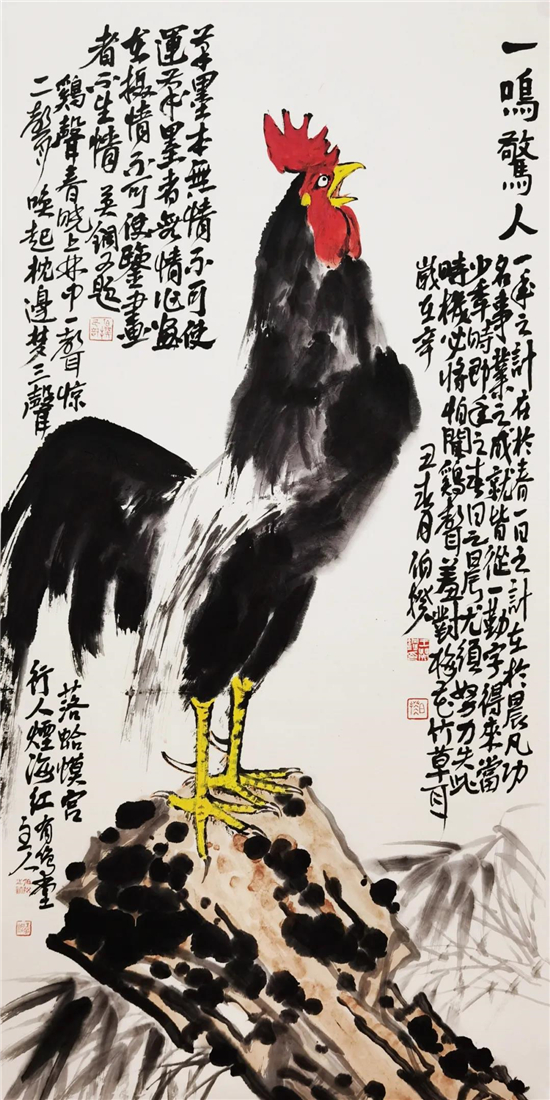 一鳴驚人
一年之計在於春一日之計在於晨凡功
名事業之成就皆從一勤字得來當
少年時即年之春日之晨尤須努力失此
時機必將怕聞鷄聲羞對梅花竹草月
歲在辛
丑春月伯
筆墨本無情不可使
運筆墨者無情作畫
在攝情不可使鑒畫
者不生情 英鋼又題
鷄聲春曉上林中一聲惊
二聲 喚起枕邊梦三聲
行人煙海紅